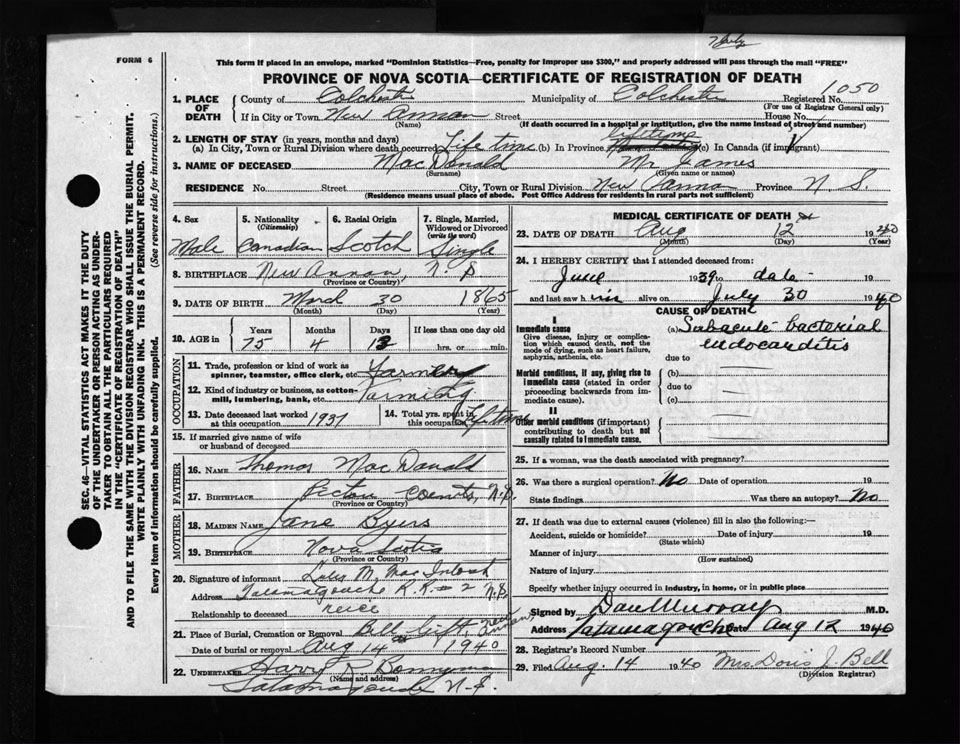 FORM 6
This form if placed in an envelope, marked "Dominion Statistics—Free, penalty for Improper use $300," and properly addressed will pass through the mail "FREE"
PROVINCE OF NOVA SCOTIA—CERTIFICATE OF REGISTRATION OF DEATH
SEC. 46—VITAL STATISTICS ACT MAKES IT THE DUTY
OF THE UNDERTAKER OR PERSON ACTING AS UNDER-
TAKER TO OBTAIN ALL THE PARTICULARS REQUIRED
IN THE "CERTIFICATE OF REGISTRATION OF DEATH"
AND TO FILE THE SAME WITH THE DIVISION REGISTRAR WHO SHALL ISSUE THE BURIAL PERMIT.
WRITE PLAINLY WITH UNFADING INK. THIS IS A PERMANENT RECORD.
Every item of Information should be carefully supplied. (See reverse side for instructions.)
1. PLACE OF DEATH County of Colchester Municipality of Colchester Registered No. 1050
(For use of Registrar General only)
If in City or Town New Annan Street House No.
(Name) (If death occurred in a hospital or institution, give the name instead of street and number)
2. LENGTH OF STAY (in years, months and days) lifetime
(a) In City, Town or Rural Division where death occurred Life time (b) In Province (c) In Canada (if immigrant)
3. NAME OF DECEASED MacDonald Mr James
(Surname) (Given name or names)
RESIDENCE No. Street City, Town or Rural Division New Annan Province N S.
(Residence means usual place of abode. Post Office Address for residents in rural parts not sufficient)
4. Sex Male
5. Nationality (Citizenship) Canadian
6. Racial Origin Scotch
7. Single, Married, Widowed or Divorced (write the word) Single
8. BIRTHPLACE New Annan, N. S
(Province or Country)
9. DATE OF BIRTH March 30 1865
(Month) (Day) (Year)
10. AGE in Years 75 Months 4 Days 12 If less than one day old hrs. or min.
OCCUPATION
11. Trade, profession or kind of work as spinner, teamster, office clerk, etc. Farmer
12. Kind of industry or business, as cotton-mill, lumbering, bank, etc. Farming
13. Date deceased last worked at this occupation 1937
14. Total yrs. spent in this occupation Lifetime
15. If married give name of wife or husband of deceased
FATHER
16. NAME Thomas MacDonald
17. BIRTHPLACE Pictou County, N.S.
(Province or Country)
MOTHER
18. MAIDEN NAME Jane Byers
19. BIRTHPLACE Nova Scotia
(Province or Country)
20. Signature of informant M. MacIntosh
Address Tatamagouche R.R. #2 N.S.
Relationship to deceased neice
21. Place of Burial, Cremation or Removal Bell New Annan
Date of burial or removal Aug 14 1940
22. UNDERTAKER Harry R Bonnyman
(Name and address)
Tatamagouche N.S.
MEDICAL CERTIFICATE OF DEATH
23. DATE OF DEATH Aug 12 1940
(Month) (Day) (Year)
24. I HEREBY CERTIFY that I attended deceased from:
June 1939 to date 19
and last saw him alive on July 30 1940
CAUSE OF DEATH
I
Immediate cause
Give disease, injury or complication which caused death, not the mode of dying, such as heart failure, asphyxia, asthenia, etc.
(a) Subacute bacterial
endocarditis
due to
Morbid conditions, if any, giving rise to Immediate cause (stated in order proceeding backwards from immediate cause).
(b)
due to
(c)
II
Other morbid conditions (if important) contributing to death but not causally related to Immediate cause.
25. If a woman, was the death associated with pregnancy?
26. Was there a surgical operation? No Date of operation 19
State findings Was there an autopsy? No
27. If death was due to external causes (violence) fill in also the following:—
Accident, suicide or homicide? Date of injury 19
(State which)
Manner of injury
(How sustained)
Nature of injury
Specify whether injury occurred in industry, in home, or in public place
Signed by Dan Murray M.D.
Address Tatamagouche Date Aug 12 1940
28. Registrar's Record Number
29. Filed Aug. 14 1940 Mrs Doris J. Bell
(Division Registrar)